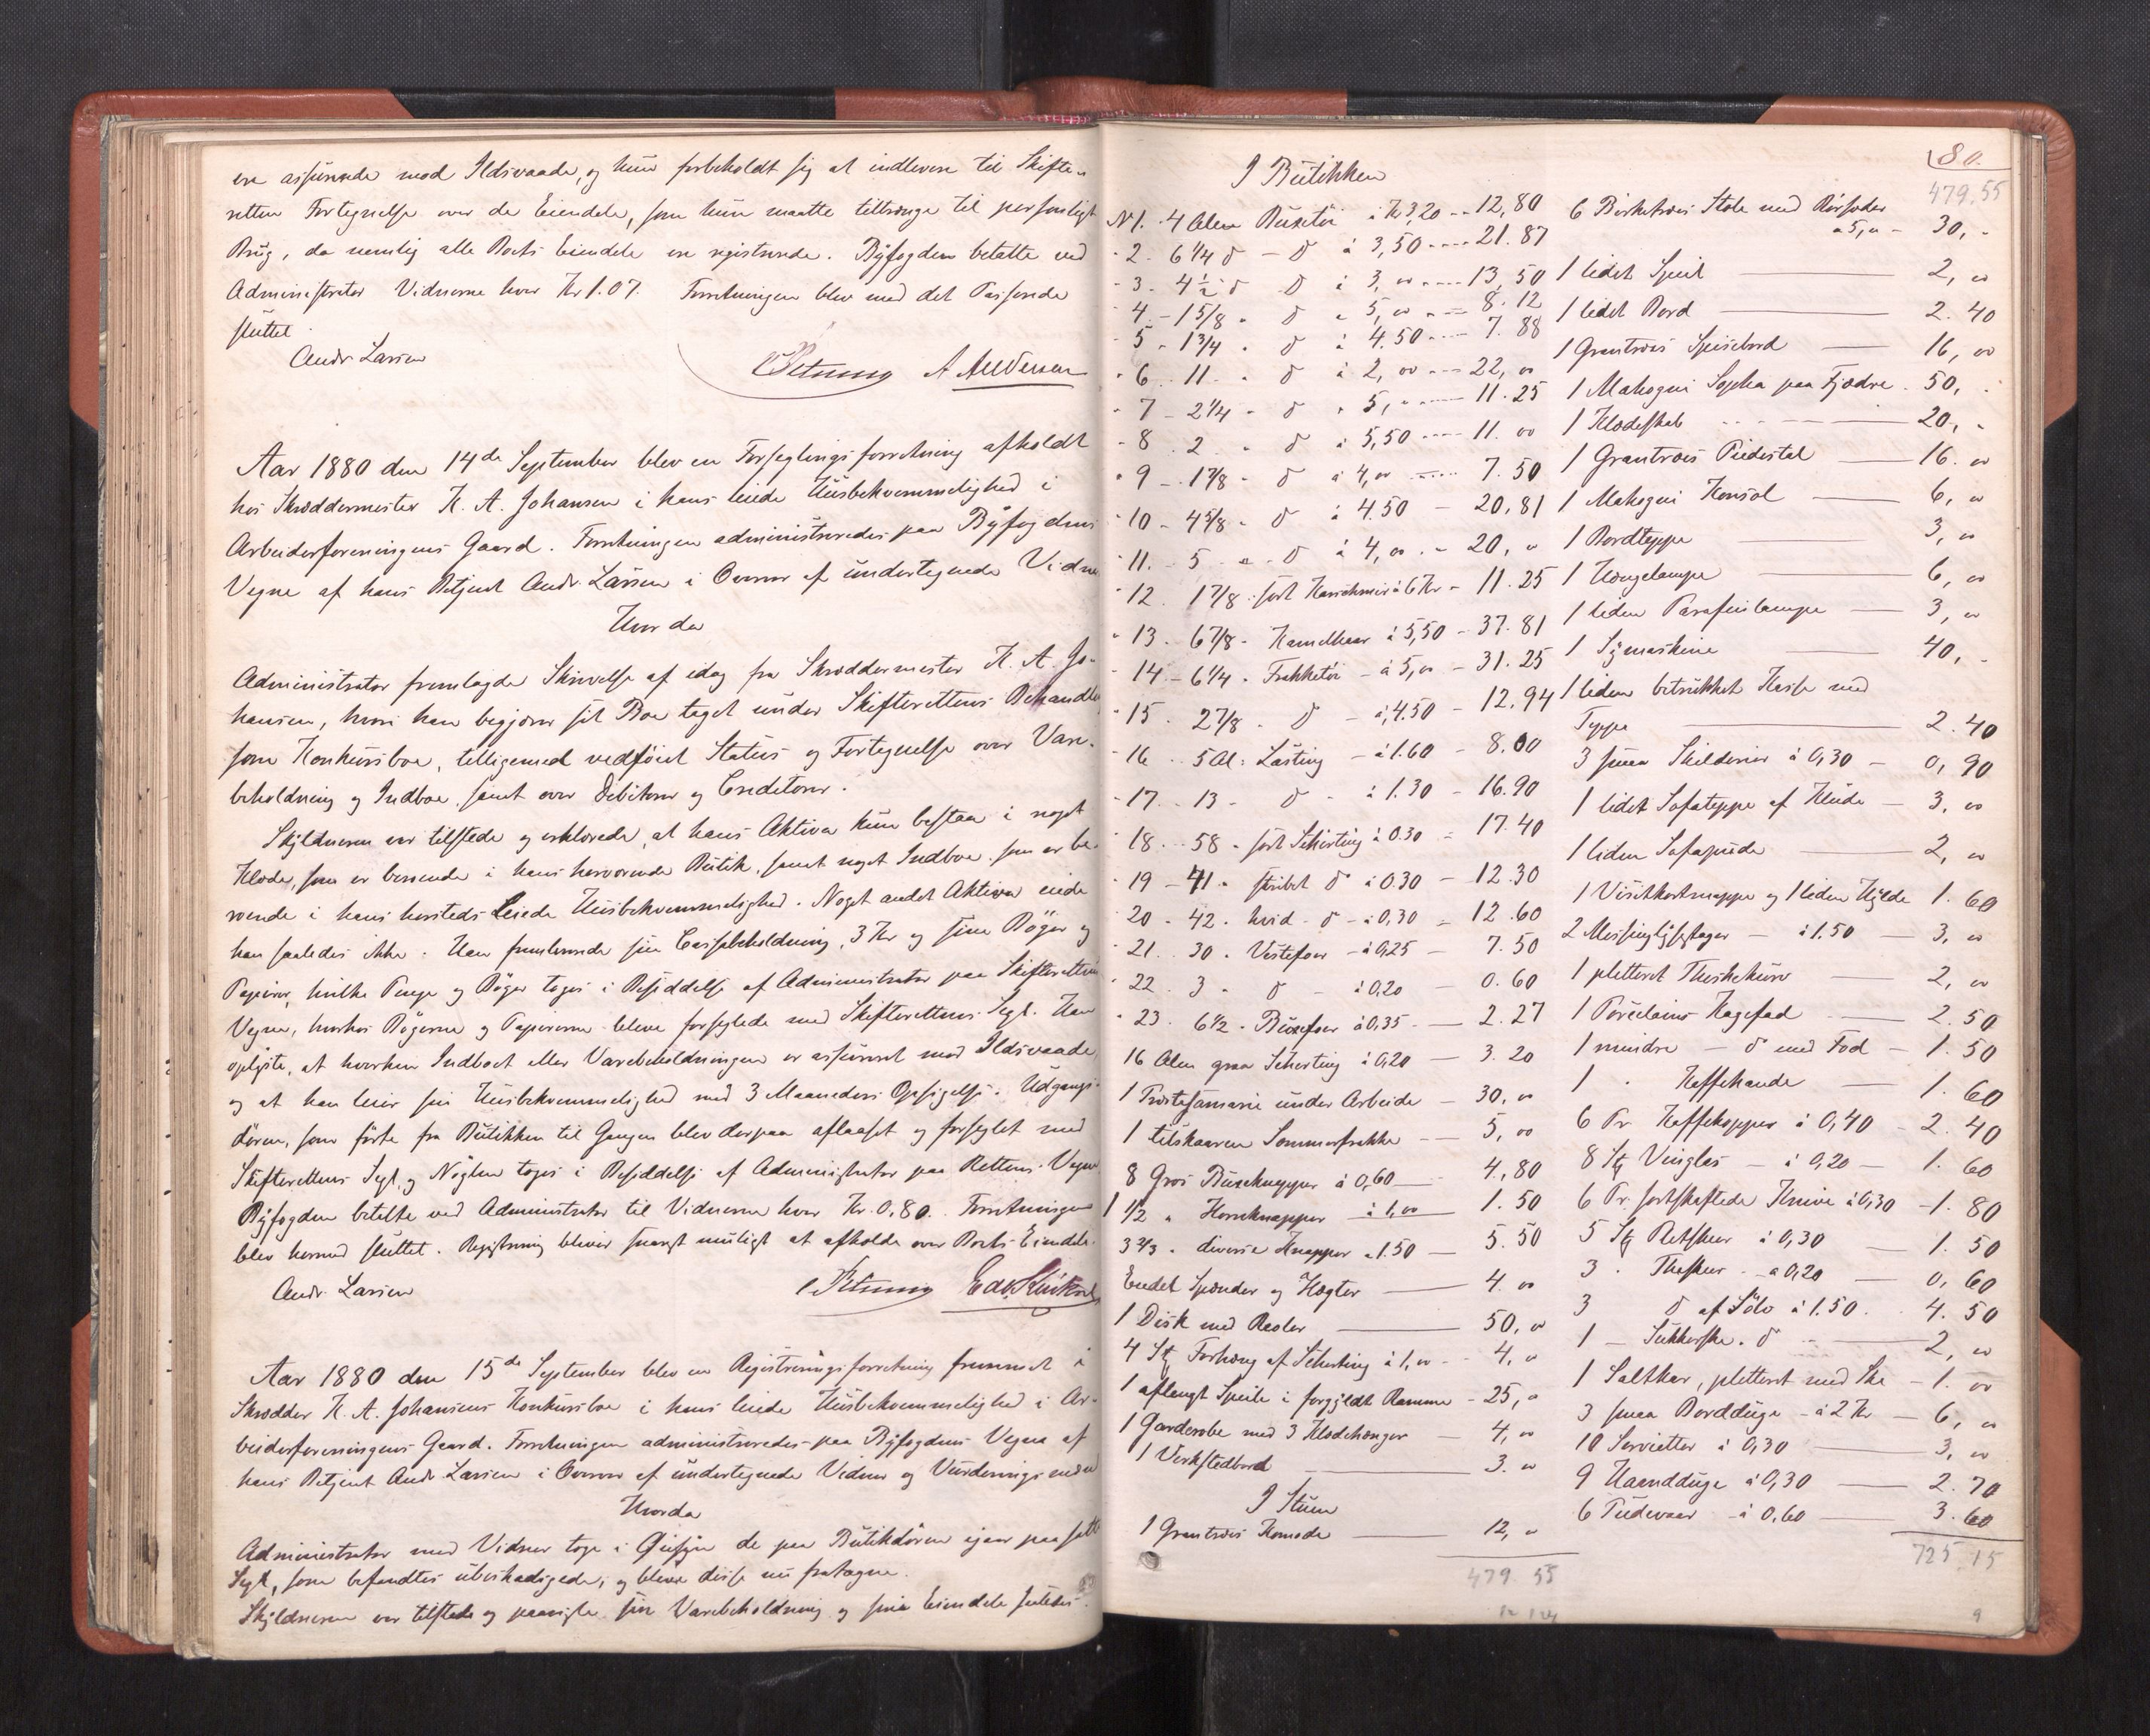 ere assurerede mod Ildsvaade, og hun forbeholdt sig at indlevere til Skifte-
retten Fortegnelse over de Eiendele, som hun maatte tiltrænge til personligt
Brug, da nemlig alle Boets Eiendele ere registrerede. Byfogden betalte ved
Administrator Vidnerne hver Kr 1.07. Forretningen blev med det Passerede
sluttet.
Andr Larsen
A Andersen
Aar 1880 den 14de September blev en Forseglingsforretning afholdt
hos Skræddermester K. A. Johansen i hans leiede Huusbekvemmelighed i
Arbeiderforeningens Gaard. Forretningen administreredes paa Byfogdens
Vegne af hans Betjent Andr. Larsen i Overvær af undertegnede Vidner
Hvorda
Administrator fremlagde Skrivelse af idag fra Skræddermester K. A. Jo-
hansen, hvori han begjærer sit Boe taget under Skifterettens Behandling
som Konkursboe, tilligemed vedføiet Status og Fortegnelse over Vare-
beholdning og Indboe, samt over Debitorer og Creditorer.
Skyldneren var tilstede og erklærede, at hans Aktiva kun bestaa i noget
Klæde, som er beroende i hans herværende Butik, samt noget Indboe, som er be-
roende i hans hersteds leiede Huusbekvemmelighed. Noget andet Aktiva eiede
han saaledes ikke. Han fremleverede sin Cassebeholdning, 3 Kr og sine Bøger og
Papirer, hvilke Penge og Bøger toges i Besiddelse af Administrator paa Skifterettens
Vegne, hvorhos Bøgerne og Papirerne bleve forseglede med Skifterettens Segl. Han
oplyste, at hverken Indboet eller Varebeholdningen er assureret mod Ildsvaade,
og at han leier sin Huusbekvemmelighed med 3 Maaneders Opsigelse. Udgangs-
døren, som førte fra Butikken til Gangen blev derpaa aflaaset og forseglet med
Skifterettens Segl, og Nøglen toges i Besiddelse af Administrator paa Rettens Vegne
Byfogden betalte ved Administrator til Vidnerne hver Kr. 0,80. Forretningen
blev hermed sluttet. Registrering bliver snarest muligt at afholde over Boets Eiendele.
Andr. Larsen
Aar 1880 den 15de September blev en Registreringsforretning fremmet i
Skrædder K. A. Johansens Konkursboe i hans leiede Huusbekvemmelighed i Ar-
beiderforeningens Gaard. Forretningen administreredes paa Byfogdens Vegne af
hans Betjent Andr Larsen i Overvær af undertegnede Vidner og Vurderingsmænd
Hvorda
Administrator med Vidner toge i Øiesyn de paa Butikdøren igaar paasatte
Segl, som befandtes ubeskadigede, og bleve disse nu fratagne.
Skyldneren var tilstede og paaviste sin Varebeholdning og sine Eiendele saaledes
I Butikken
No 1. 4 Alen Buxetøi à Kr 3,20 -- 12,80
" 2. 6 1/4 d - d à 3,50 --- 21.87
" 3. 4 1/2 d d à 3,00 --- 13,50
4. - 1 5/8 " d " 5,00 --- 8.12
5 - 1 3/4 " d à 4.50 --- 7.88
" 6. 11. " d à 2,00 --- 22,00
" 7 - 2 1/4 - d " 5, " --- 11.25
- 8. 2 " d à 5,50 --- 11.00
" 9 - 1 7/8 - d à 4,00 --- 7.50
" 10 - 4 5/8 - d à 4.50 - 20,81
" 11. - 5 - " - d à 4,00 - 20,"
" 12. 1 7/8 - sort Kaschmir à 6 Kr - 11.25
" 13. 6 7/8 - Kamelhaar à 5,50 - 37.81
" 14 - 6 1/4 - Frakketøi - à 5,00 - 31.25
" 15. 2 7/8 - d - à 4.50 - 12,94
- 16 - 5 Al: Lasting - à 1.60 - 8.00
- 17 - 13 - d - à 1.30 - 16.90
18. - 58 - sort Schirting à 0.30 - 17.40
" 19 - 41 - stribet d à 0.30 - 12.30
20 - 42 - hvid - d - à 0,30 - 12.60
" 21. 30. Vestefoer - à 0,25 - 7.50
" 22. 3 - d - à 0,20 - 0.60
" 23. 6 1/2 - Buxefoer à 0,35 - 2.27
16 Alen graa Schirting à 0,20 - 3.20
1 Præstesamarie under Arbeide - 30,00
1 tilskaaren Sommerfrakke - 5,00
8 Gros Buxeknapper à 0,60 - 4.80
1 1/2 " Hornknapper à 1,00 1.50
3 2/3 " diverse Knapper à 1.50 - 5.50
Endel Spænder og Hægter - 4.00
1 Disk med Reoler - 50,00
4 Stk Forhæng af Schirting à 1,00 - 4,00
1 aflangt Speile i forgyldt Ramme - 25,"
1 Garderobe med 3 Klædehænger - 4,00
1 Verkstedbord - 3.00
I Stuen
1 Grantræes Komode - 12,"
479.55
80.
479,55
6 Birketræes Stole med Rørsæder
à 5,00 - 30,-
1 lidet Speil - 2,00
1 lidet Bord - 2.40
1 Grantræes Spisebord - 16,00
1 Mahogni Sopha paa Fjædre - 50,-
1 Klædeskab - 20,-
1 Grantræes Piedestal - 16.00
1 Mahogni Konsol - 6,00
1 Bordteppe - 3,00
1 Hængelampe - 6,00
1 liden Parafinlampe - 3,00
1 Symaskine - 40,-
1 liden betrukket Kasse med
Teppe - 2.40
3 smaa Skilderier à 0,30 - 0,90
1 lidet Sofateppe af Klude - 3,00
1 liden Sofapude - 2,00
1 Visitkortmappe og 1 liden Hylde 1.60
2 Messinglysestager - à 1.50 - 3,00
1 pletteret Theskekurv - 2,00
1 Porcelains Kagefad - 2.50
1 mindre - d med Fod - 1.50
1 " Kaffekande - 1.60
6 Pr Kaffekopper à 0,40 - 2.40
8 Stk Vinglas - à 0,20 - 1.60
6 Pr. sortskaftede Knive à 0,30 - 1.80
5 Stk Retskeer à 0,30 - 1.50
3 " Theskeer - à 0,20 - 0,60
3 d af Sølv à 1.50 - 4.50
1 - Sukkerske. d - 2,00
1 Saltkar, pletteret med Ske - 1.00
3 smaa Bordduge - à 2 Kr - 6,00
10 Servietter à 0,30 - 3,00
9 Haandduge à 0,30 - 2.70
6 Pudevaar - à 0,60 - 3.60
725.15